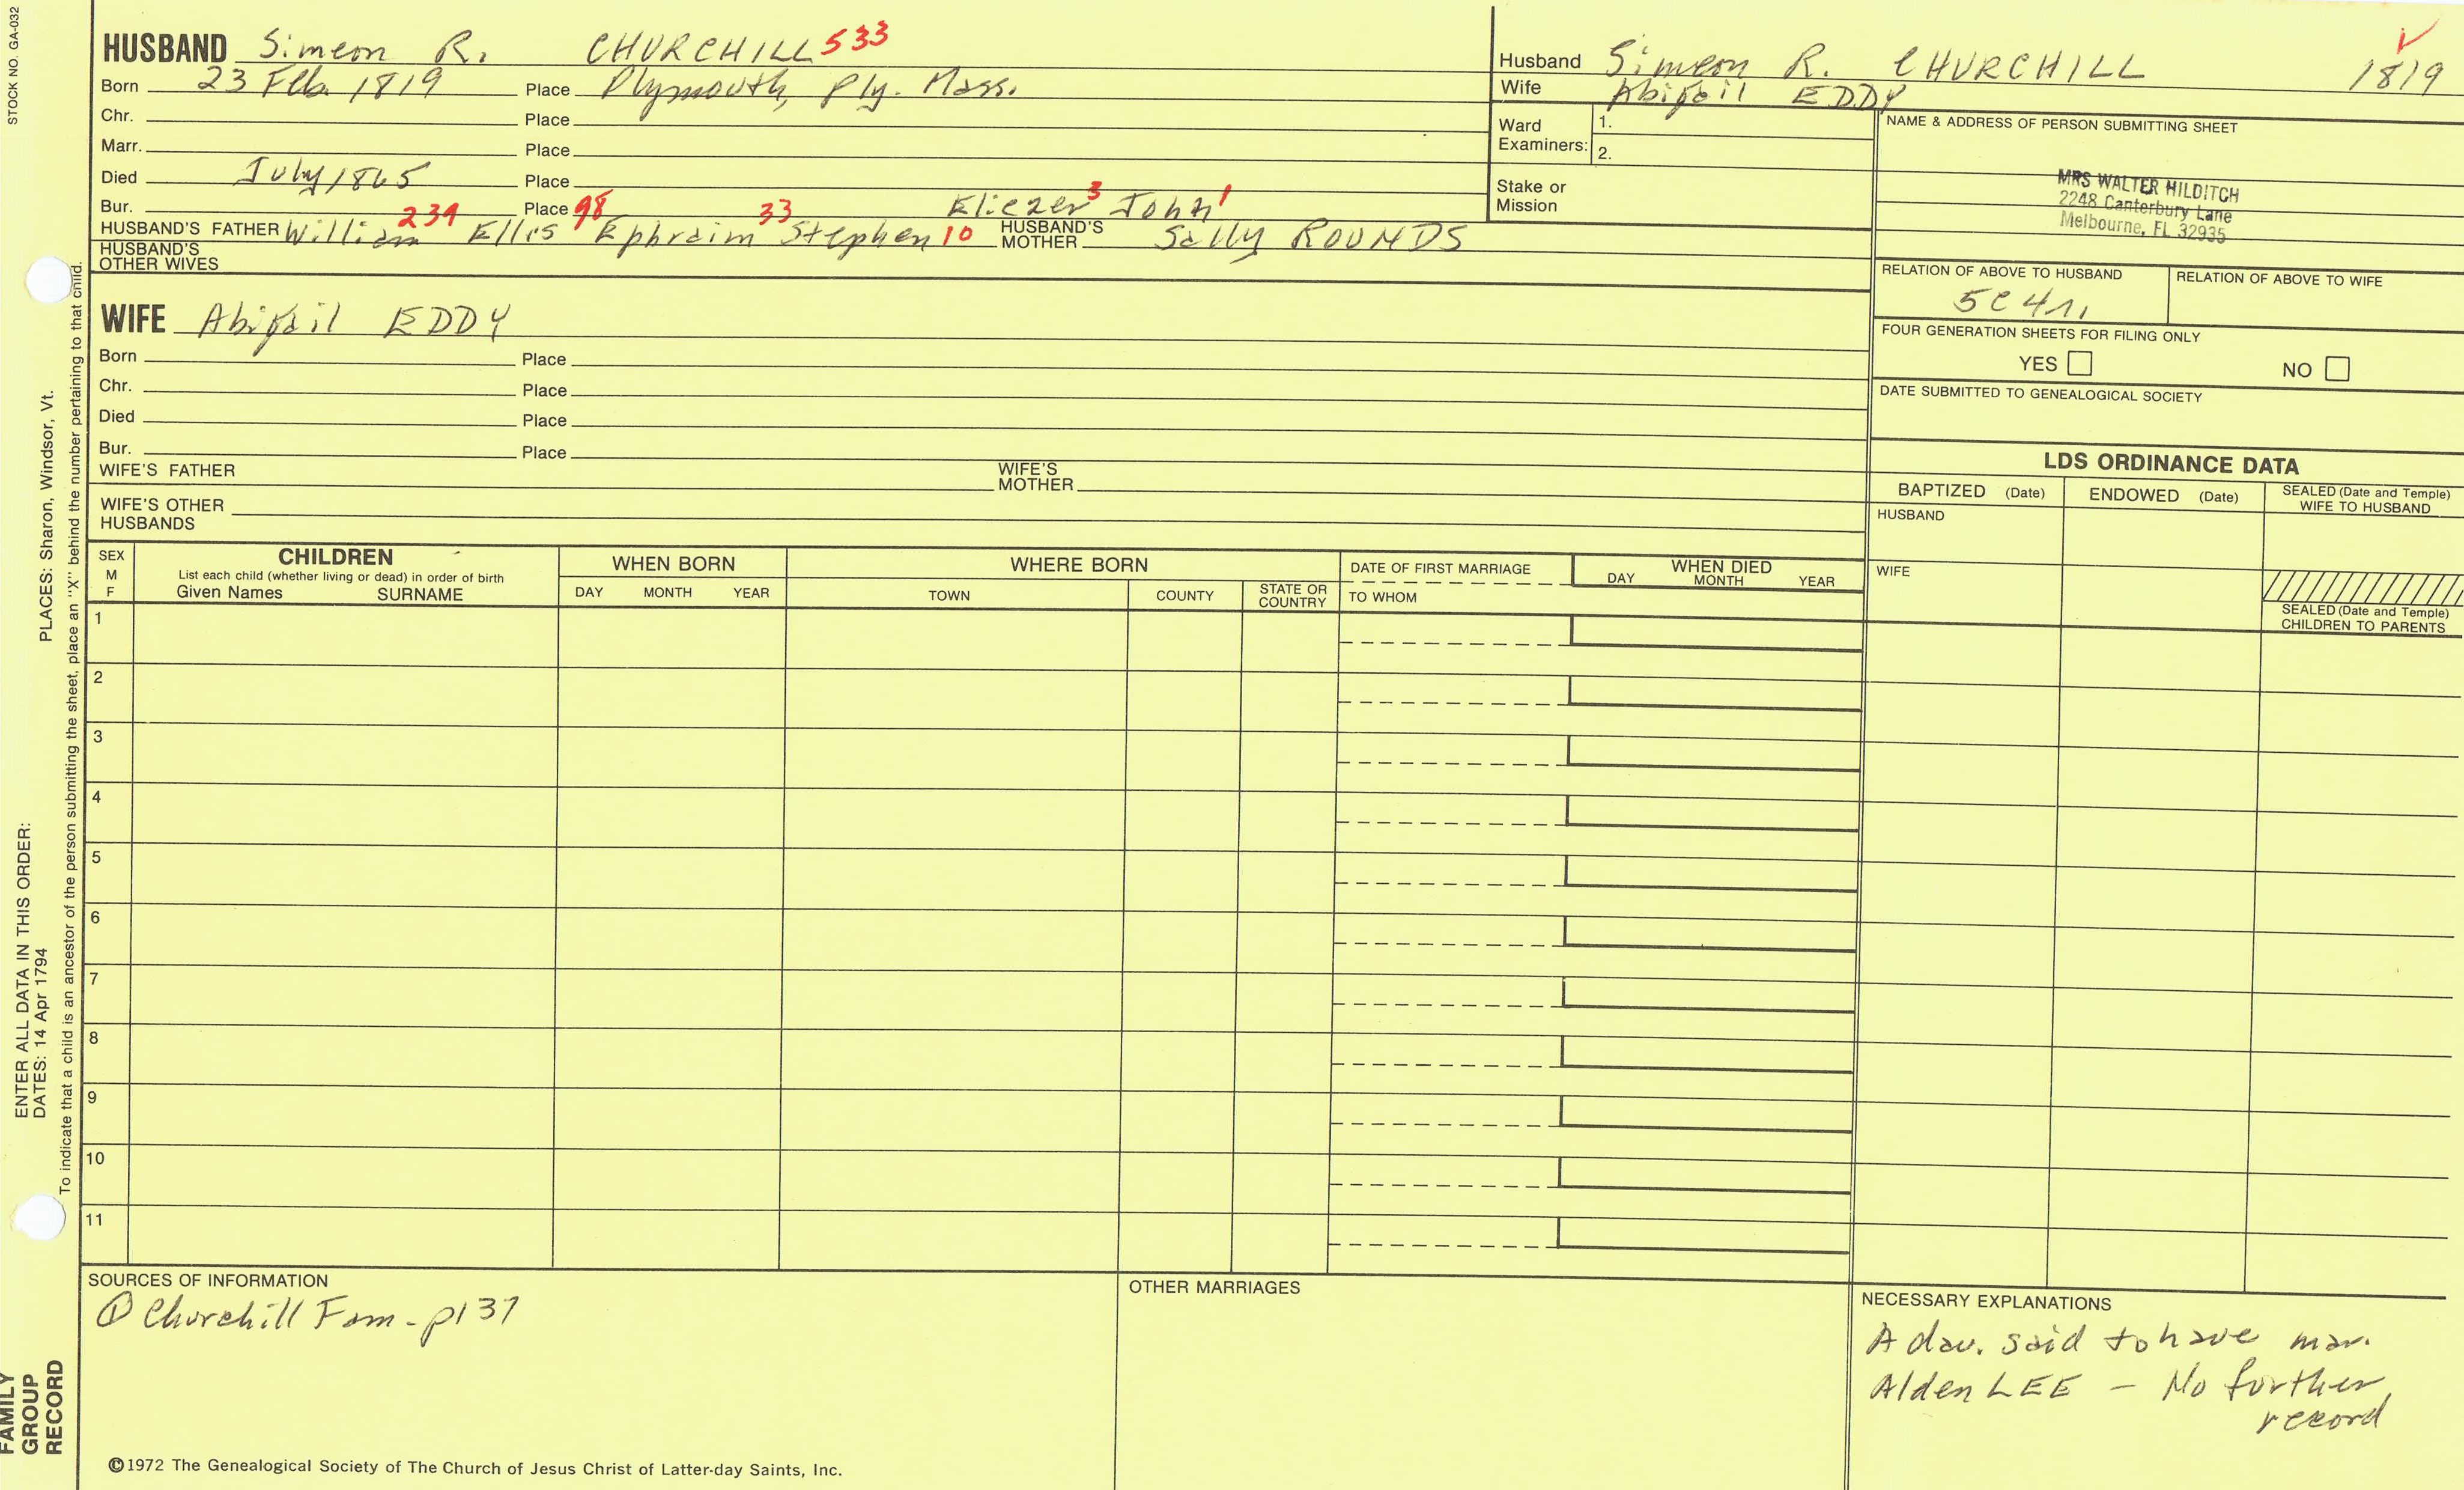 STOCK NO. GA-032
HUSBAND Simeon R. CHURCHILL 533
Born 23 Feb. 1819 Place Plymouth, Ply. Mass.
Chr. Place
Marr. Place
Died July 1865 Place
Bur. Place 98 Eliezer 3 John 1
HUSBAND'S FATHER William 239 Ellis Ephraim 33 Stephen 10 HUSBAND'S MOTHER Sally ROUNDS
HUSBAND'S OTHER WIVES
WIFE Abigail EDDY
Born Place
Chr. Place
Died Place
Bur. Place
WIFE'S FATHER WIFE'S MOTHER
WIFE'S OTHER HUSBANDS
Husband Simeon R. CHURCHILL 1819
Wife Abigail EDDY
Ward Examiners: 1.
2.
Stake or Mission
NAME & ADDRESS OF PERSON SUBMITTING SHEET
MRS WALTER HILDITCH
2248 Canterbury Lane
Melbourne, FL 32935
RELATION OF ABOVE TO HUSBAND RELATION OF ABOVE TO WIFE
5C4r.
FOUR GENERATION SHEETS FOR FILING ONLY
YES NO
DATE SUBMITTED TO GENEALOGICAL SOCIETY
LDS ORDINANCE DATA
BAPTIZED (Date) ENDOWED (Date) SEALED (Date and Temple) WIFE TO HUSBAND
HUSBAND
WIFE
SEALED (Date and Temple) CHILDREN TO PARENTS
SEX M F
CHILDREN
List each child (whether living or dead) in order of birth
Given Names SURNAME
WHEN BORN
DAY MONTH YEAR
WHERE BORN
TOWN COUNTY STATE OR COUNTRY
DATE OF FIRST MARRIAGE
TO WHOM
WHEN DIED
DAY MONTH YEAR
1
2
3
4
5
6
7
8
9
10
11
SOURCES OF INFORMATION
① Churchill Fam - p137
OTHER MARRIAGES
NECESSARY EXPLANATIONS
A dau. said to have mar.
Alden LEE – No further
record
©1972 The Genealogical Society of The Church of Jesus Christ of Latter-day Saints, Inc.
FAMILY
GROUP
RECORD
ENTER ALL DATA IN THIS ORDER: PLACES: Sharon, Windsor, Vt.
DATES: 14 Apr 1794
To indicate that a child is an ancestor of the person submitting the sheet, place an "X" behind the number pertaining to that child.